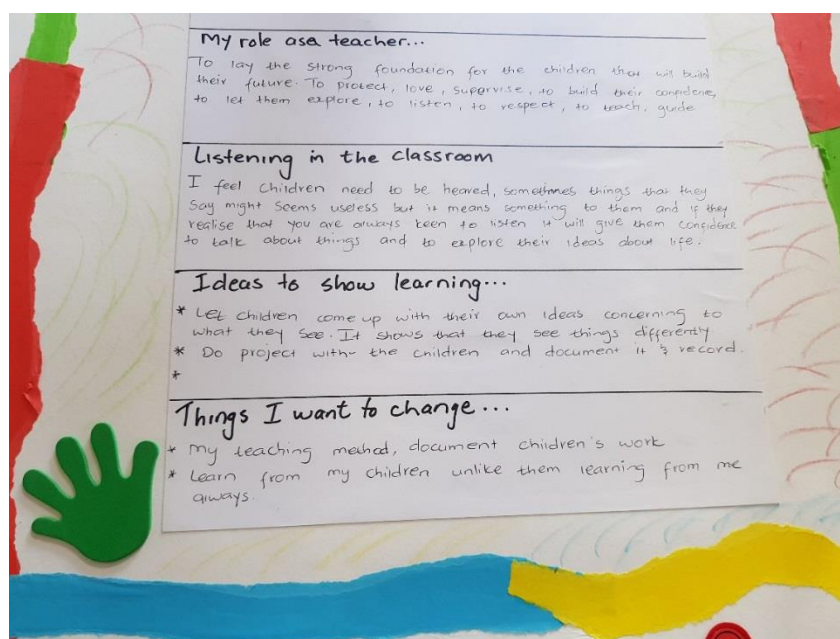 My role as a teacher...
To lay the strong foundation for the children that will build
their future. To protect, love, supervise, to build their confidence,
to let them explore, to listen, to respect, to teach, guide
Listening in the classroom
I feel children need to be heared, sometimes things that they
say might seems useless but it means something to them and if they
realise that you are always keen to listen it will give them confidence
to talk about things and to explore their ideas about life.
Ideas to show learning...
* Let children come up with their own ideas concerning to
what they see. It shows that they see things differently
* Do project with the children and document it & record.
*
Things I want to change...
* My teaching method, document children's work
* Learn from my children unlike them learning from me
always.